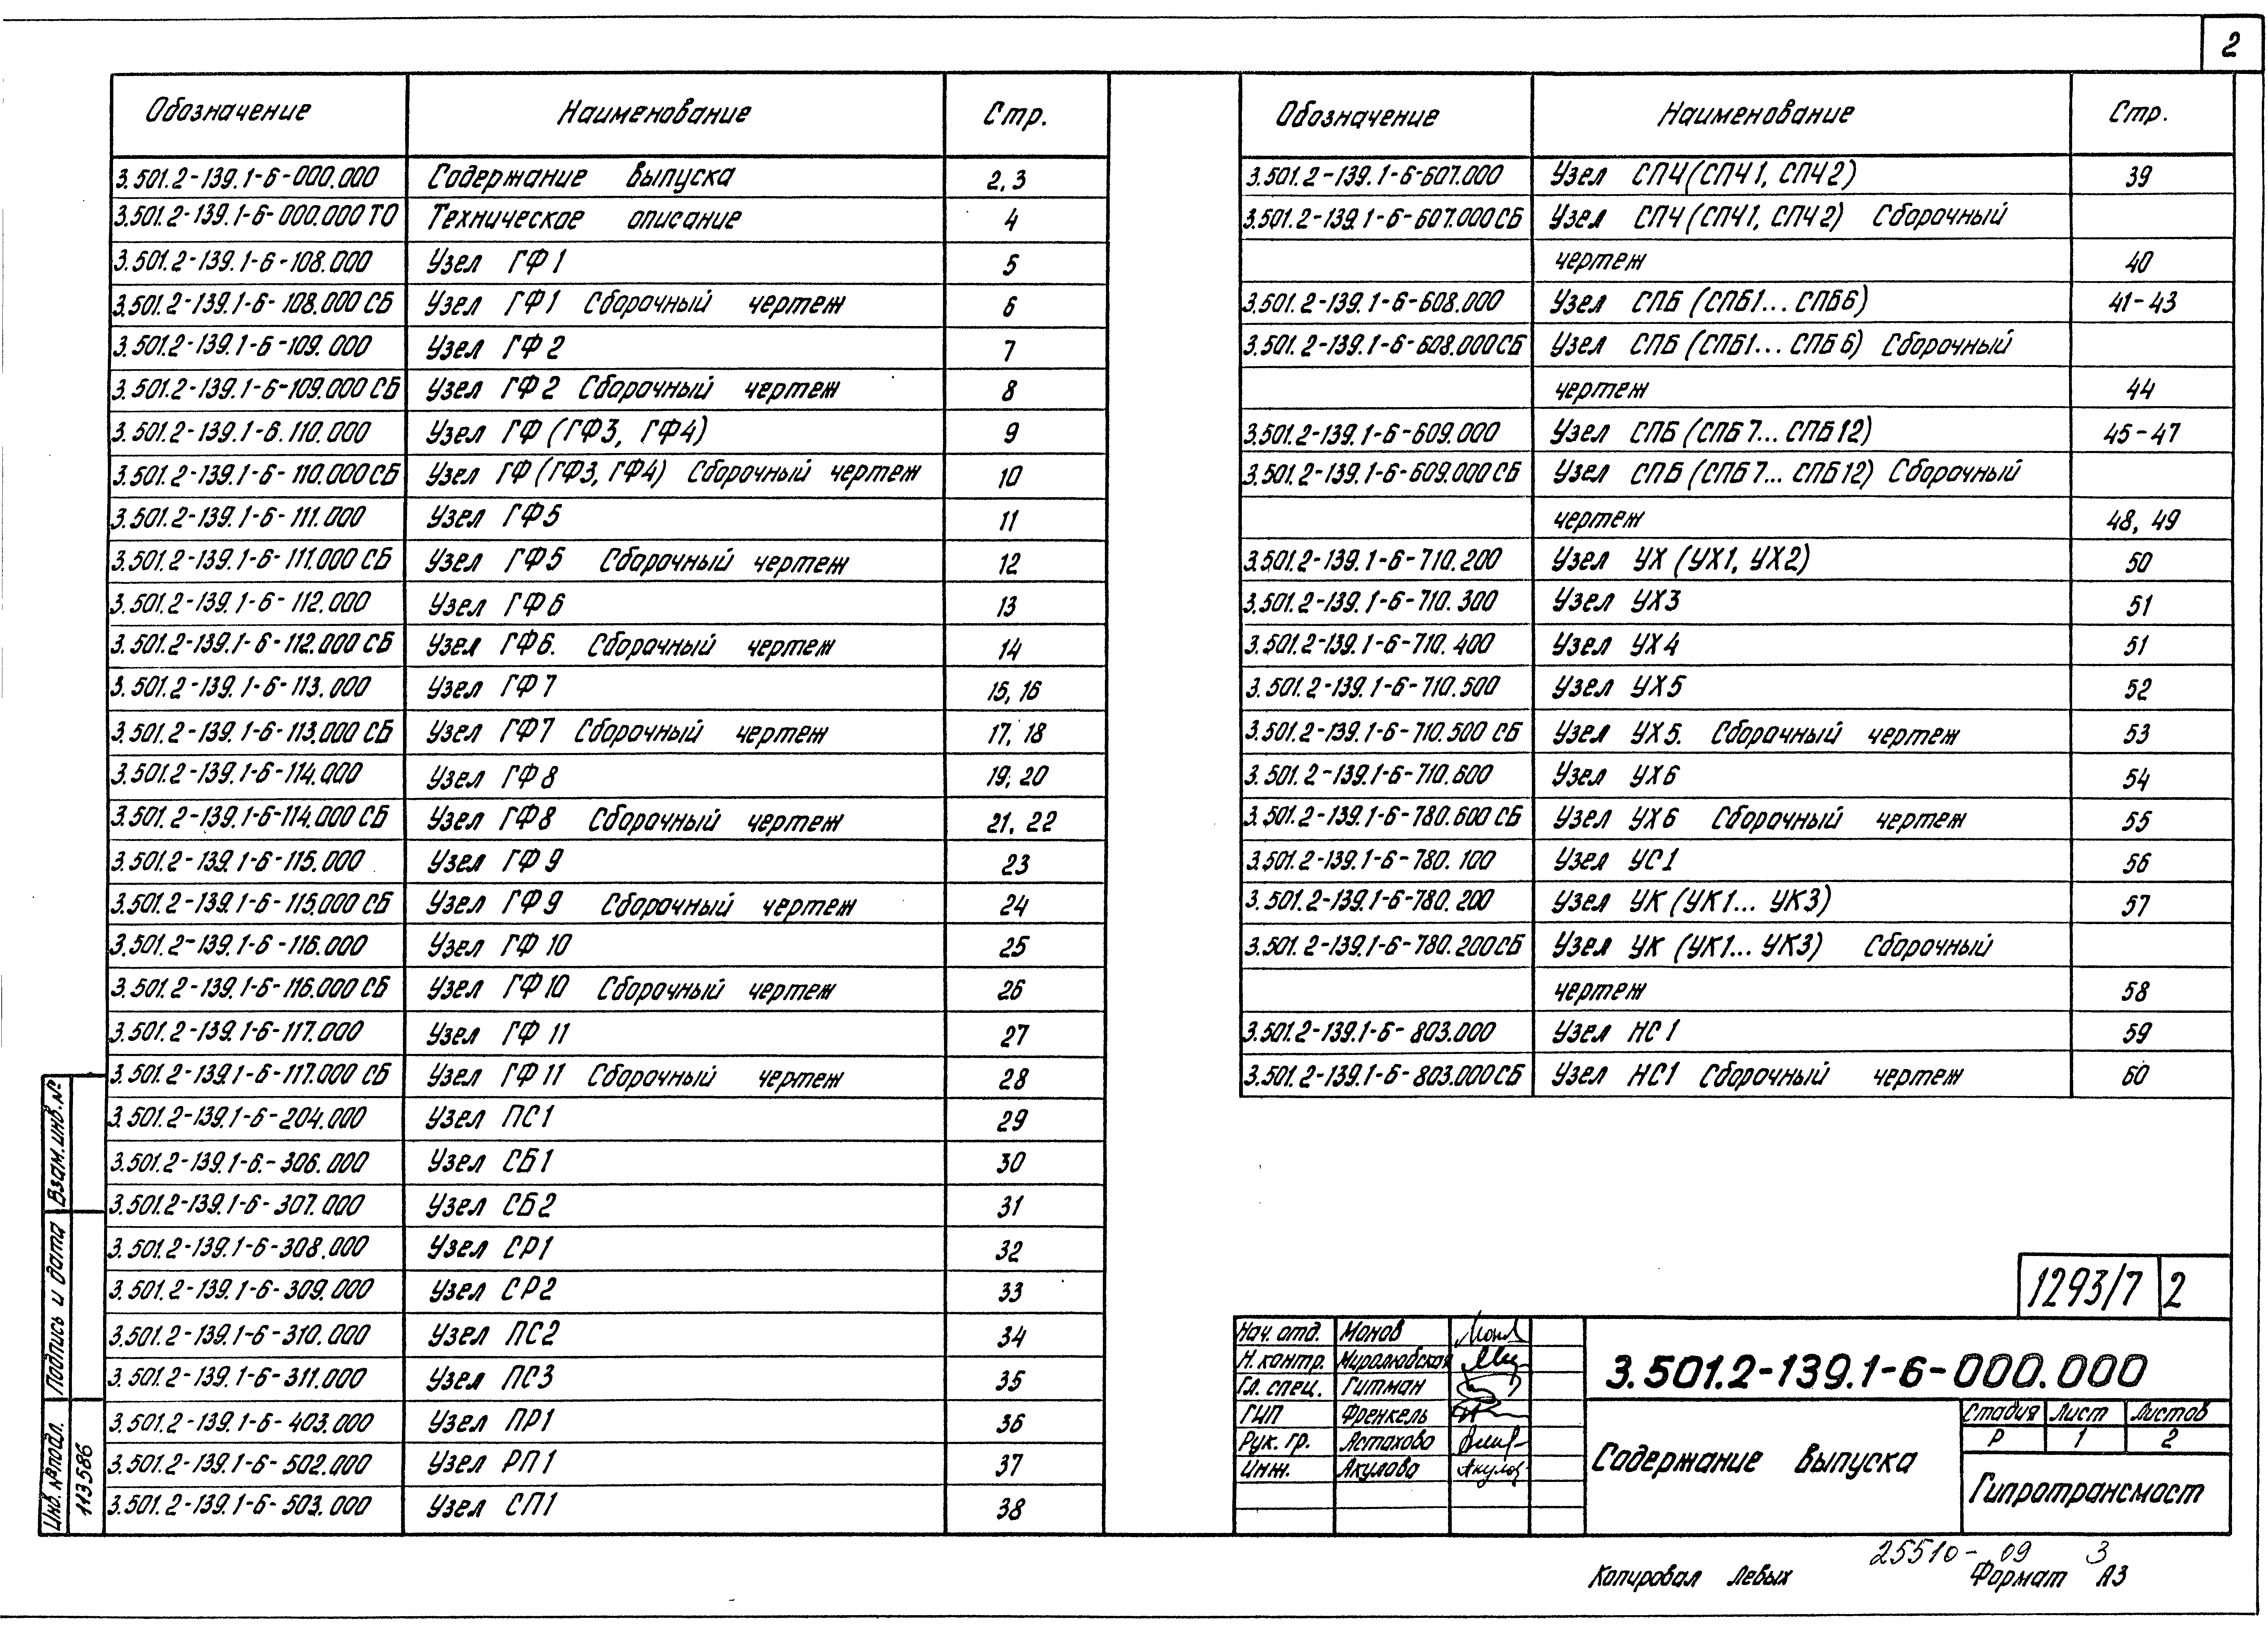 2
Обозначение Наименование Стр.
3.501.2-139.1-6-000.000 Содержание выпуска 2,3
3.501.2-139.1-6-000.000 ТО Техническое описание 4
3.501.2-139.1-6-108.000 Узел ГФ1 5
3.501.2-139.1-6-108.000 СБ Узел ГФ1 Сборочный чертеж 6
3.501.2-139.1-6-109.000 Узел ГФ2 7
3.501.2-139.1-6-109.000 СБ Узел ГФ2 Сборочный чертеж 8
3.501.2-139.1-6.110.000 Узел ГФ (ГФ3, ГФ4) 9
3.501.2-139.1-6-110.000 СБ Узел ГФ (ГФ3, ГФ4) Сборочный чертеж 10
3.501.2-139.1-6-111.000 Узел ГФ5 11
3.501.2-139.1-6-111.000 СБ Узел ГФ5 Сборочный чертеж 12
3.501.2-139.1-6-112.000 Узел ГФ6 13
3.501.2-139.1-6-112.000 СБ Узел ГФ6. Сборочный чертеж 14
3.501.2-139.1-6-113.000 Узел ГФ7 15, 16
3.501.2-139.1-6-113.000 СБ Узел ГФ7 Сборочный чертеж 17, 18
3.501.2-139.1-6-114.000 Узел ГФ8 19, 20
3.501.2-139.1-6-114.000 СБ Узел ГФ8 Сборочный чертеж 21, 22
3.501.2-139.1-6-115.000 Узел ГФ9 23
3.501.2-139.1-6-115.000 СБ Узел ГФ9 Сборочный чертеж 24
3.501.2-139.1-6-116.000 Узел ГФ10 25
3.501.2-139.1-6-116.000 СБ Узел ГФ10 Сборочный чертеж 26
3.501.2-139.1-6-117.000 Узел ГФ11 27
3.501.2-139.1-6-117.000 СБ Узел ГФ11 Сборочный чертеж 28
3.501.2-139.1-6-204.000 Узел ПС1 29
3.501.2-139.1-6.-306.000 Узел СБ1 30
3.501.2-139.1-6-307.000 Узел СБ2 31
3.501.2-139.1-6-308.000 Узел СР1 32
3.501.2-139.1-6-309.000 Узел СР2 33
3.501.2-139.1-6-310.000 Узел ПС2 34
3.501.2-139.1-6-311.000 Узел ПС3 35
3.501.2-139.1-6-403.000 Узел ПР1 36
3.501.2-139.1-6-502.000 Узел РП1 37
3.501.2-139.1-6-503.000 Узел СП1 38
Обозначение Наименование Стр.
3.501.2-139.1-6-607.000 Узел СПЧ (СПЧ1, СПЧ2) 39
3.501.2-139.1-6-607.000 СБ Узел СПЧ (СПЧ1, СПЧ2) Сборочный
чертеж 40
3.501.2-139.1-6-608.000 Узел СПБ (СПБ1... СПБ6) 41-43
3.501.2-139.1-6-608.000 СБ Узел СПБ (СПБ1... СПБ6) Сборочный
чертеж 44
3.501.2-139.1-6-609.000 Узел СПБ (СПБ7... СПБ12) 45-47
3.501.2-139.1-6-609.000 СБ Узел СПБ (СПБ7... СПБ12) Сборочный
чертеж 48, 49
3.501.2-139.1-6-710.200 Узел УХ (УХ1, УХ2) 50
3.501.2-139.1-6-710.300 Узел УХ3 51
3.501.2-139.1-6-710.400 Узел УХ4 51
3.501.2-139.1-6-710.500 Узел УХ5 52
3.501.2-139.1-6-710.500 СБ Узел УХ5. Сборочный чертеж 53
3.501.2-139.1-6-710.600 Узел УХ6 54
3.501.2-139.1-6-780.600 СБ Узел УХ6 Сборочный чертеж 55
3.501.2-139.1-6-780.100 Узел УС1 56
3.501.2-139.1-6-780.200 Узел УК (УК1... УК3) 57
3.501.2-139.1-6-780.200 СБ Узел УК (УК1... УК3) Сборочный
чертеж 58
3.501.2-139.1-6-803.000 Узел НС1 59
3.501.2-139.1-6-803.000 СБ Узел НС1 Сборочный чертеж 60
Взам.инв.№
Подпись и дата
Инв.№подл. 113586
1293/7 2
Нач. отд. Монов
Н. контр. Миролюбская
Гл. спец. Гитман
ГИП Френкель
Рук. гр. Астахова
Инж. Акулова Акулов
3.501.2-139.1-6-000.000
Содержание выпуска
Стадия Лист Листов
Р 1 2
Гипротрансмост
25510-09 3
Копировал Левых Формат А3